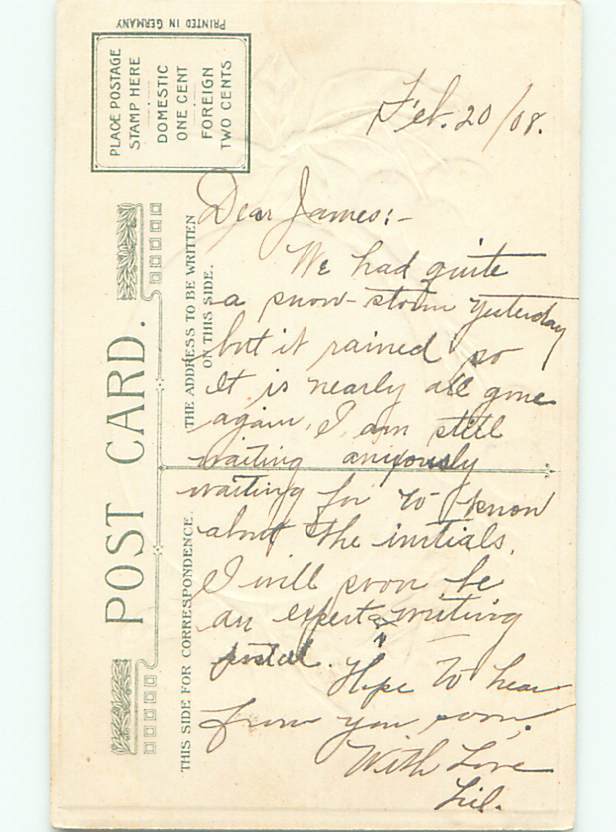 PRINTED IN GERMANY
PLACE POSTAGE
STAMP HERE
DOMESTIC
ONE CENT
FOREIGN
TWO CENTS
POST CARD.
THE ADDRESS TO BE WRITTEN
ON THIS SIDE.
THIS SIDE FOR CORRESPONDENCE.
Feb. 20/08.
Dear James:-
We had quite
a snow-storm yesterday
but it rained so
it is nearly all gone
again. I am still
waiting anxiously
waiting for to know
about the initials.
I will soon be
an expert a writing
postal. Hope to hear
from you soon.
With Love
Lil.